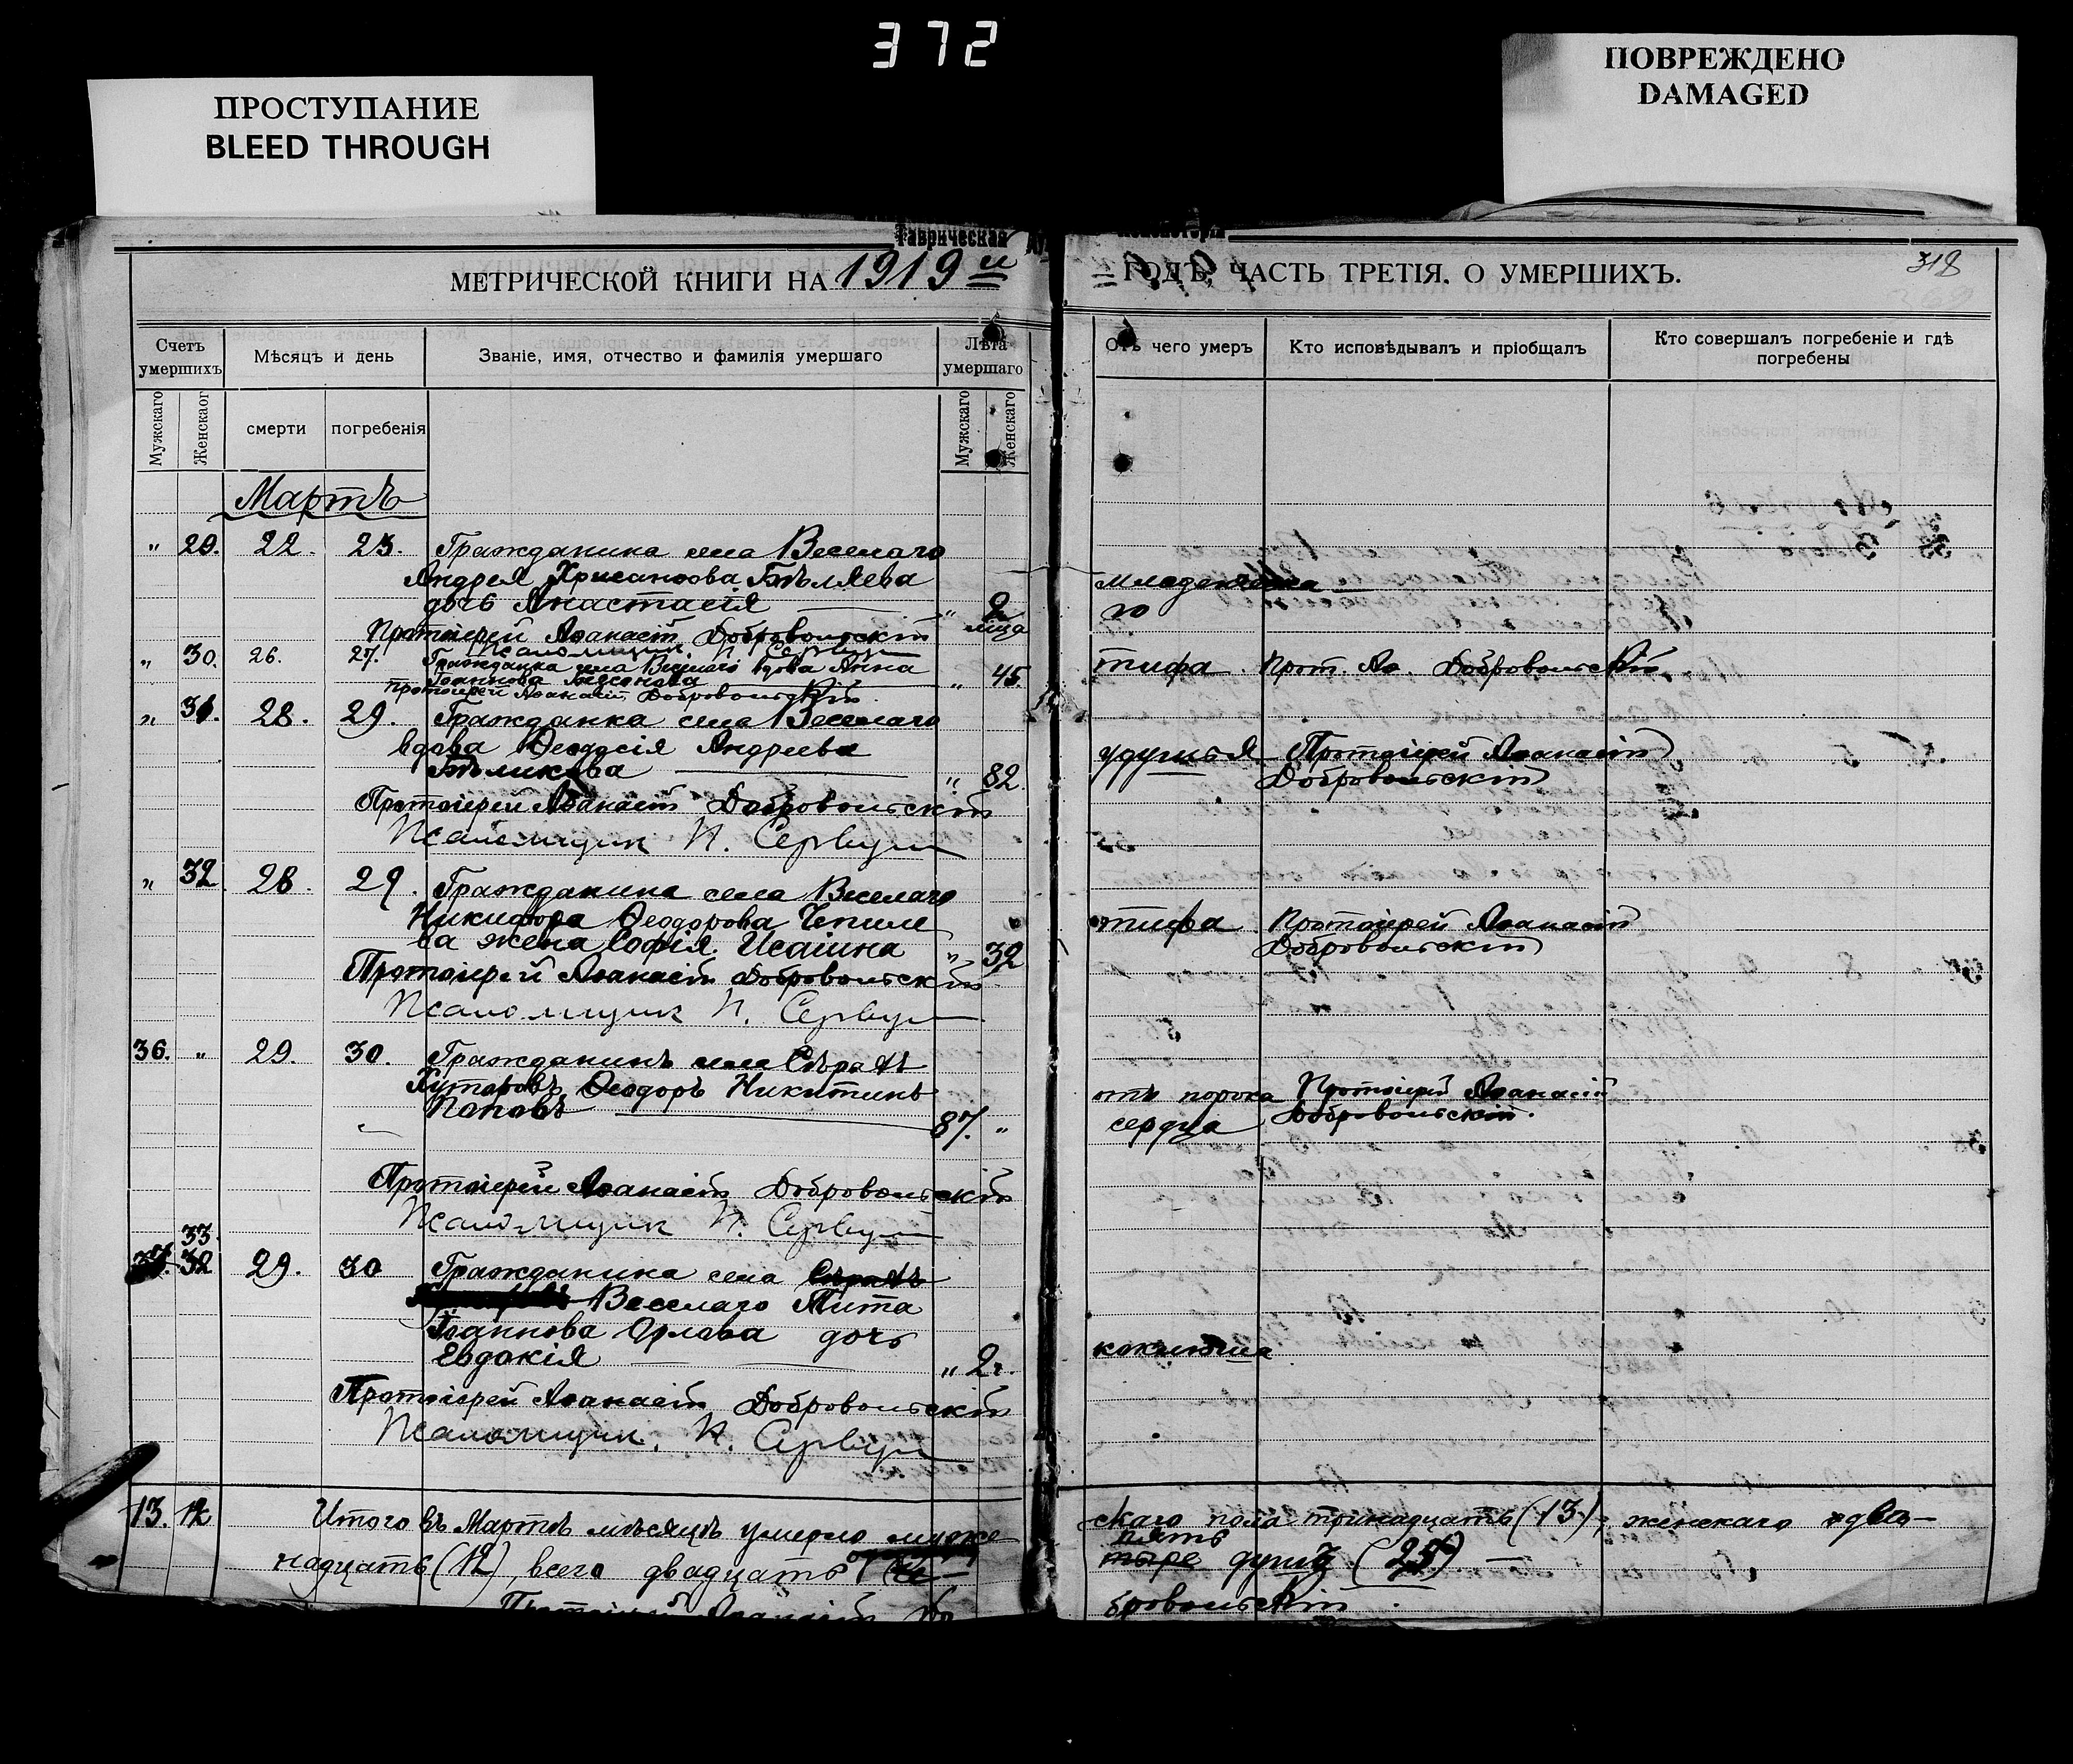 372
ПРОСТУПАНИЕ
BLEED THROUGH
ПОВРЕЖДЕНО
DAMAGED
Таврическая
Консисторія
МЕТРИЧЕСКОЙ КНИГИ НА 1919 й
ГОДЪ, ЧАСТЬ ТРЕТІЯ. О УМЕРШИХЪ.
318
Счетъ умершихъ
Мѣсяцъ и день
Званіе, имя, отчество и фамилія умершаго
Лѣта умершаго
Отъ чего умеръ
Кто исповѣдывалъ и пріобщалъ
Кто совершалъ погребеніе и гдѣ погребены
Мужскаго
Женскаог
смерти
погребенія
Мужскаго
Женскаго
Мартъ
" 29. 22. 23. Гражданина села Веселаго
Андрея Хрисанѳова Бѣляева
младенческа
дочь Анастасія — " 2
го
мѣца
Протоіерей Аѳанасій Добровольскій
Псаломщик П.
" 30. 26. 27. Гражданка села Веселаго вдова Анна
Іоаннова " 45
тифа Прот. Аѳ. Добровольскій
Протоіерей Аѳанасій Добровольскій
" 31. 28. 29. Гражданка села Веселаго
вдова Ѳеодосія Андреева
удушья Протоіерей Аѳанасій
Бѣликова — " 82.
Добровольскій
Протоіерей Аѳанасій Добровольскій
Псаломщик П.
" 32. 28. 29. Гражданина села Веселаго
Никифора Ѳеодорова Чепиле
тифа Протоіерей Аѳанасій
ва жена Софія Исаіина " 32
Добровольскій
Протоіерей Аѳанасій Добровольскій
Псаломщик П.
36. " 29. 30. Гражданинъ села
Ѳеодоръ Никитинъ
отъ порока Протоіерей Аѳанасій
Поповъ — 87. "
сердца Добровольскій.
Протоіерей Аѳанасій Добровольскій
Псаломщик П.
33
32 29. 30 Гражданина села
Веселаго Тита
Іоаннова Орлова дочь
Евдокія — " 2г.
коклюша
Протоіерей Аѳанасій Добровольскій
Псаломщик. П.
13. 12 Итого въ Мартѣ мѣсяцѣ умерло муже
скаго пола тринадцать (13), женскаго двѣ—
надцать (12), всего двадцать че—
пять
тыре душъ (25) —
Протоіерей Аѳанасій До
бровольскій.